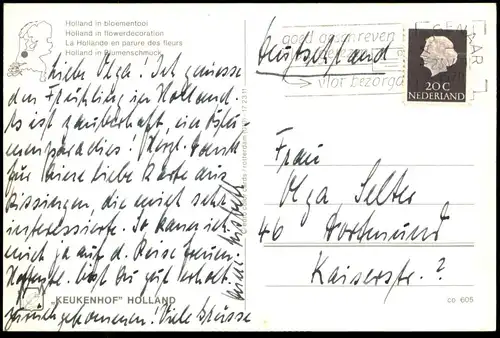 Holland in bloementooi
Holland in flowerdecoration
La Hollande en parure des fleurs
Holland in Blumenschmuck
Liebe Olga! Ich geniesse
den Frühling in Holland.
Es ist zauberhaft, ein
paradies! Herzl. Dank
für Deine liebe Karte aus
Kissingen, die mich sehr
interessierte. So kann ich
mich ja auf d. Reise freuen.
Hoffentl. bist Du gut erholt
zurückgekommen! Viele Grüsse
"KEUKENHOF" HOLLAND
goed geschreven
vlot bezorgd
Deutschland
20 C
NEDERLAND
Frau
Olga Selter
46 Dortmund
Kaiserstr. ?
co 605